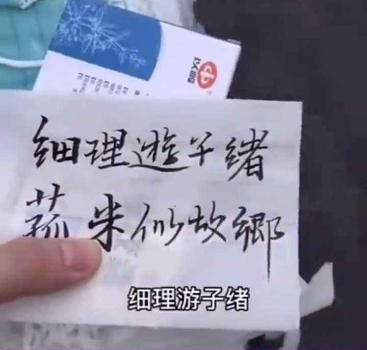 细理遊子绪
菰米似故鄉
细理游子绪